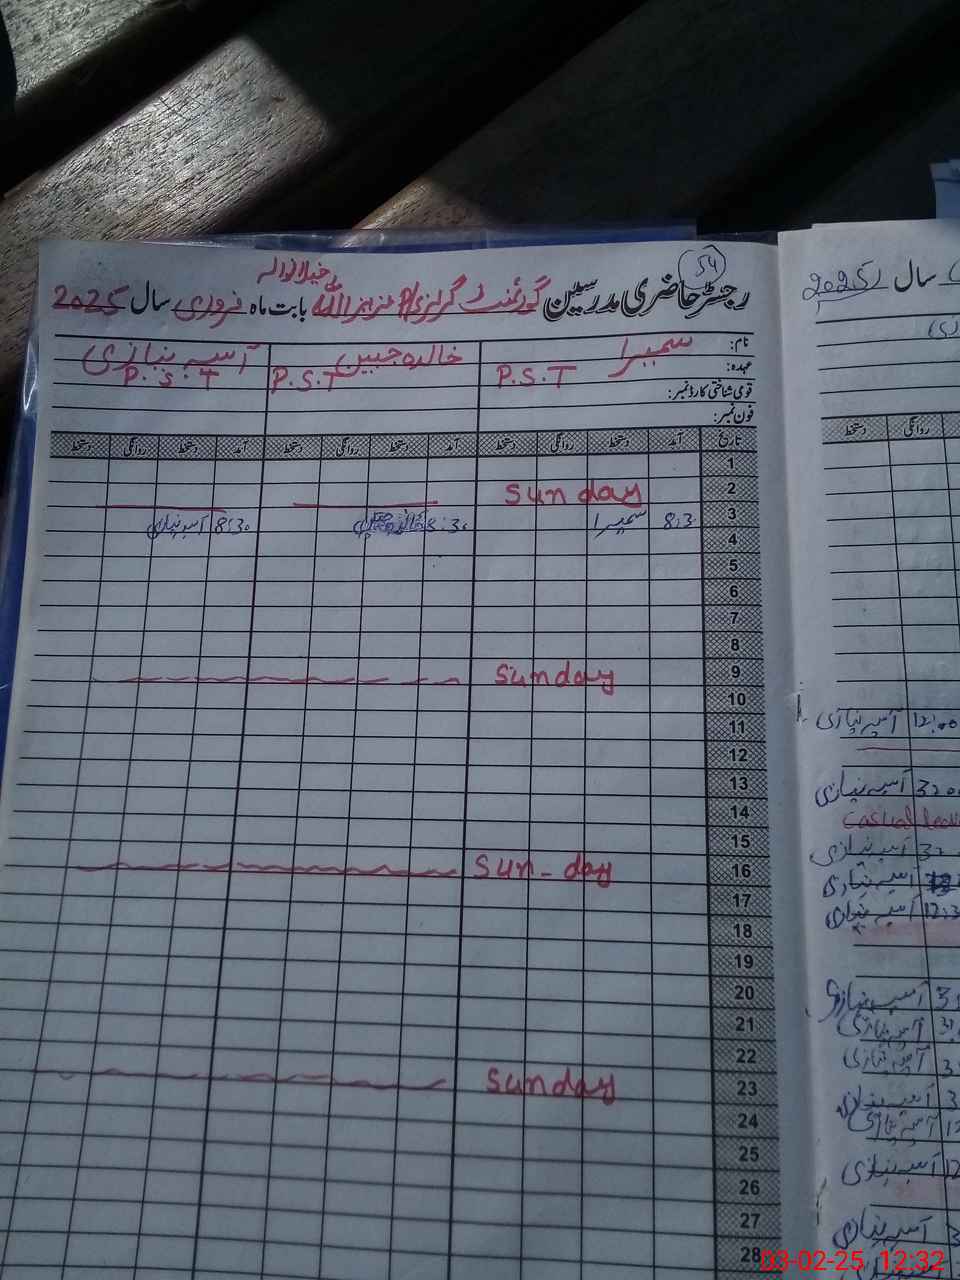 54
رجسٹر حاضری مدرسین گورنمنٹ گرلز بابت ماہ فروری سال 2025
نام: سمیرا خالدہ جبین آسیہ نیازی
عہدہ: P.S.T P.S.T P.S.T
قومی شناختی کارڈ نمبر:
فون نمبر:
تاریخ آمد دستخط روانگی دستخط آمد دستخط روانگی دستخط آمد دستخط روانگی دستخط
1
2 Sunday
3 8:3 سمیرا 8:30 8:30 آسیہ نیازی
4
5
6
7
8
9 Sunday
10
11
12
13
14
15
16 Sun-day
17
18
19
20
21
22
23 Sunday
24
25
26
27
28
سال 2025
روانگی دستخط
12:00 آسیہ نیازی
آسیہ نیازی
Casual
آسیہ نیازی
آسیہ نیازی
آسیہ نیازی
آسیہ نیازی
آسیہ نیازی
آسیہ نیازی
آسیہ نیازی
آسیہ نیازی
آسیہ نیازی
آسیہ نیازی
03-02-25 12:32